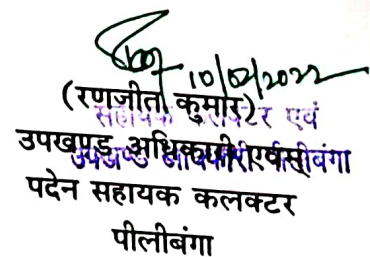 10/02/2022
(रणजीत कुमार)
सहायक कलक्टर एवं
उपखण्ड अधिकारी एवम्
उपखण्ड अधिकारी पीलीबंगा
पदेन सहायक कलक्टर
पीलीबंगा